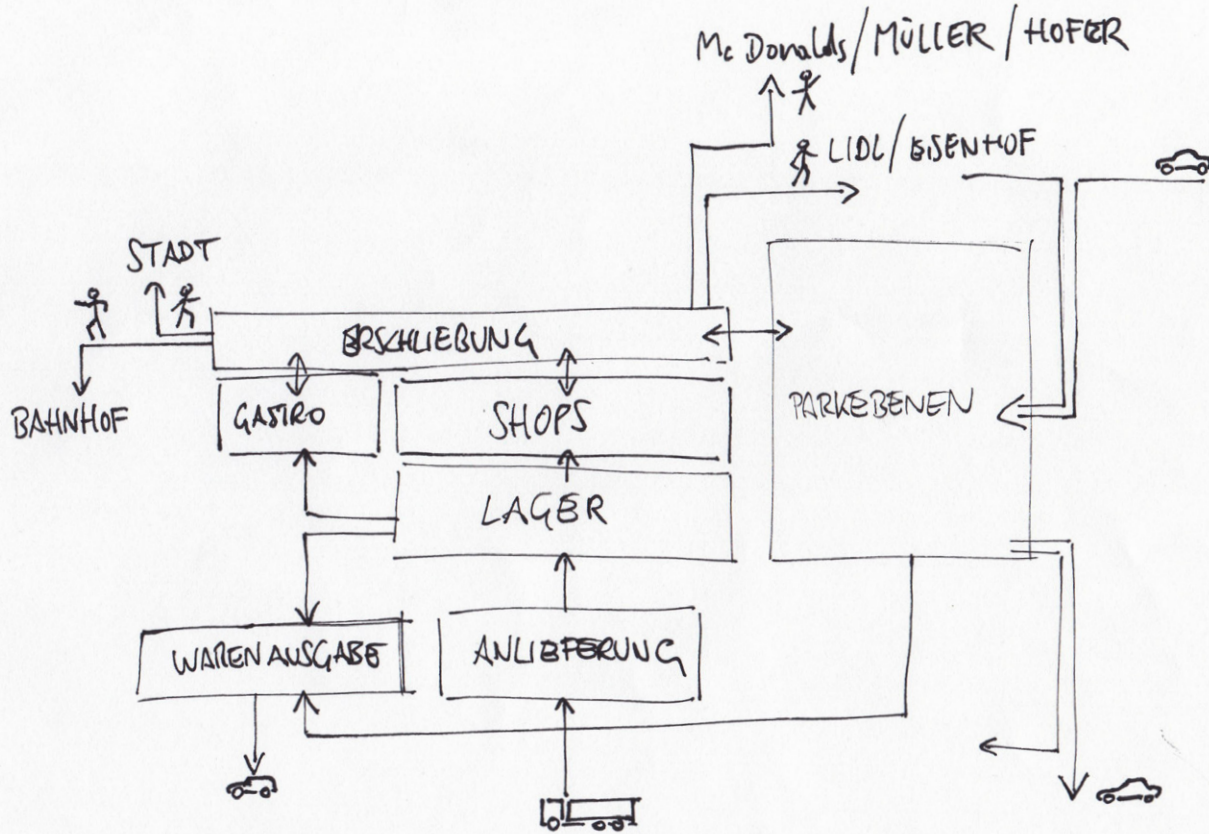 Mc Donalds / MÜLLER / HOFER
LIDL / EISENHOF
STADT
ERSCHLIEBUNG
BAHNHOF
GASTRO
SHOPS
PARKEBENEN
LAGER
WARENAUSGABE
ANLIEFERUNG